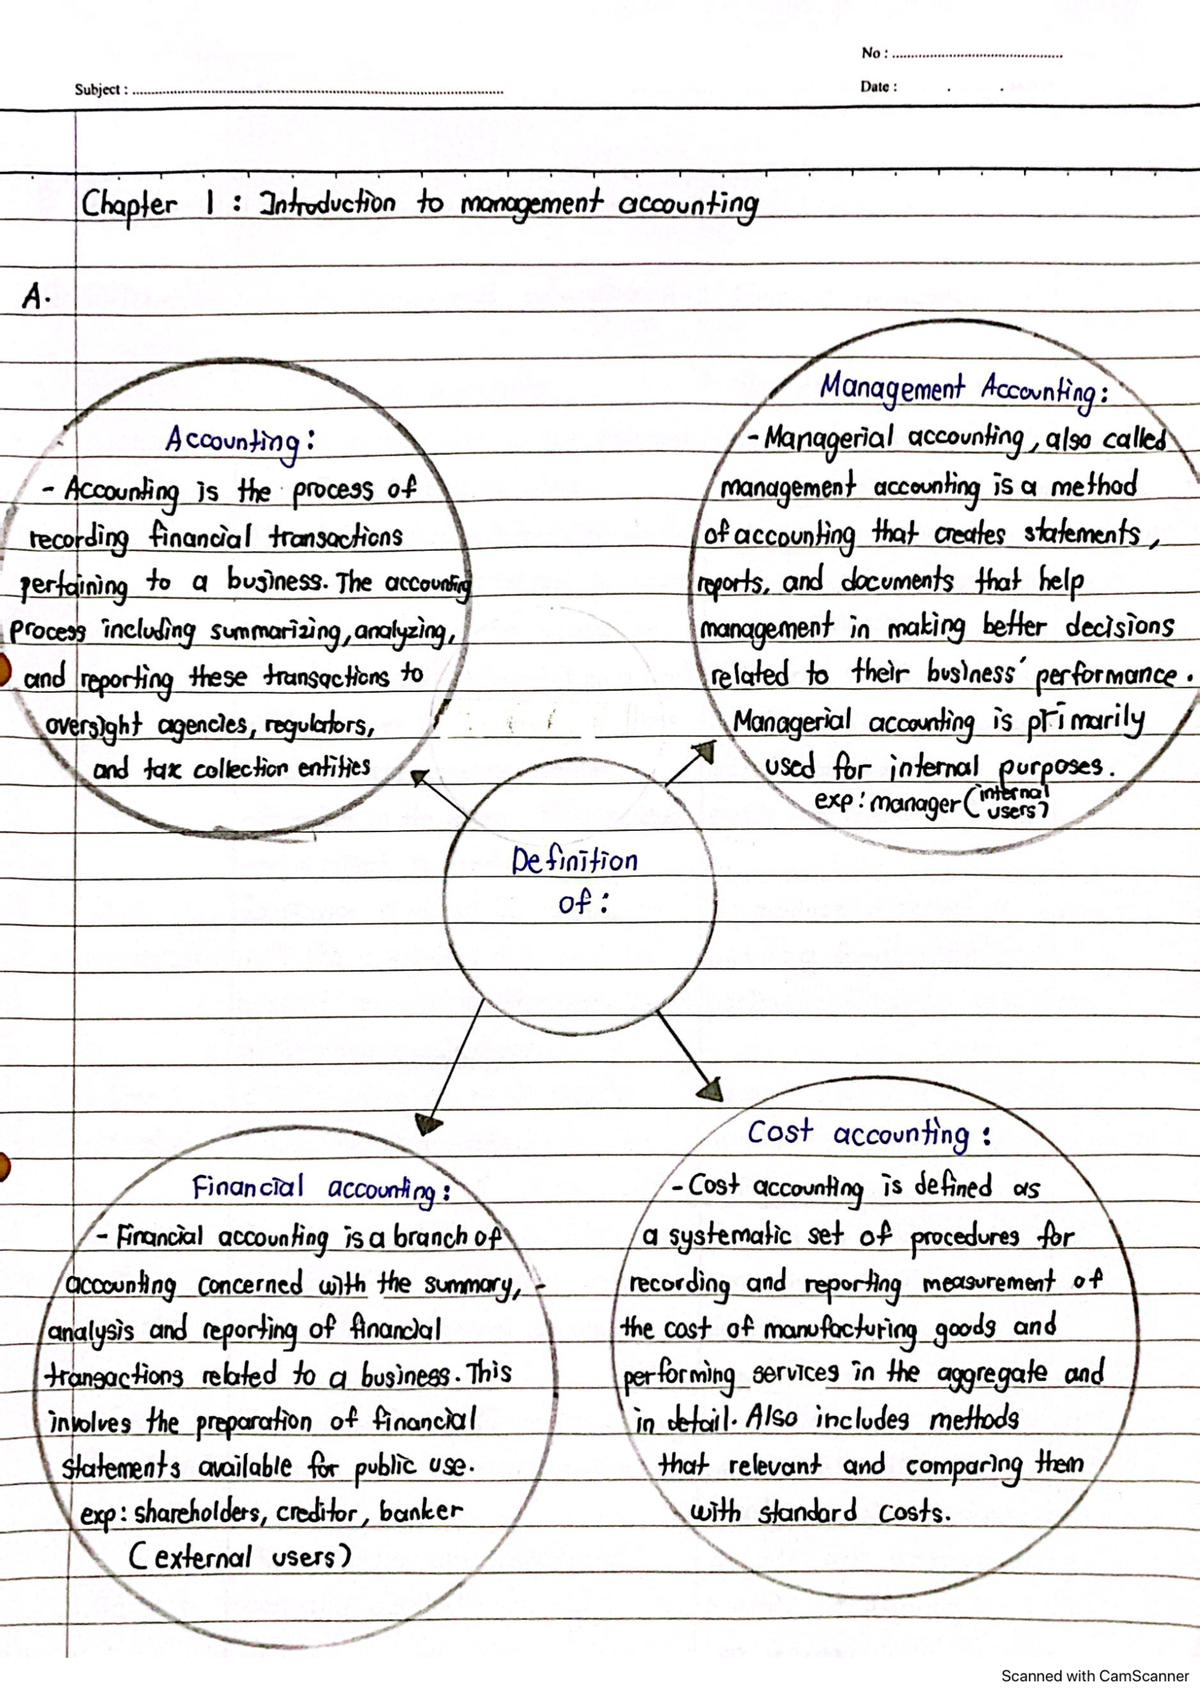 No :
Subject :
Date :
Chapter 1 : Introduction to management accounting
A.
Accounting :
- Accounting is the process of
recording financial transactions
pertaining to a business. The accounting
process including summarizing, analyzing,
and reporting these transactions to
oversight agencies, regulators,
and tax collection entities
Management Accounting :
- Managerial accounting, also called
management accounting is a method
of accounting that creates statements,
reports, and documents that help
management in making better decisions
related to their business' performance.
Managerial accounting is primarily
used for internal purposes.
exp : manager (internal
users)
Definition
of :
Financial accounting :
- Financial accounting is a branch of
accounting concerned with the summary,
analysis and reporting of financial
transactions related to a business. This
involves the preparation of financial
statements available for public use.
exp : shareholders, creditor, banker
(external users)
Cost accounting :
- Cost accounting is defined as
a systematic set of procedures for
recording and reporting measurement of
the cost of manufacturing goods and
performing services in the aggregate and
in detail. Also includes methods
that relevant and comparing them
with standard costs.
Scanned with CamScanner